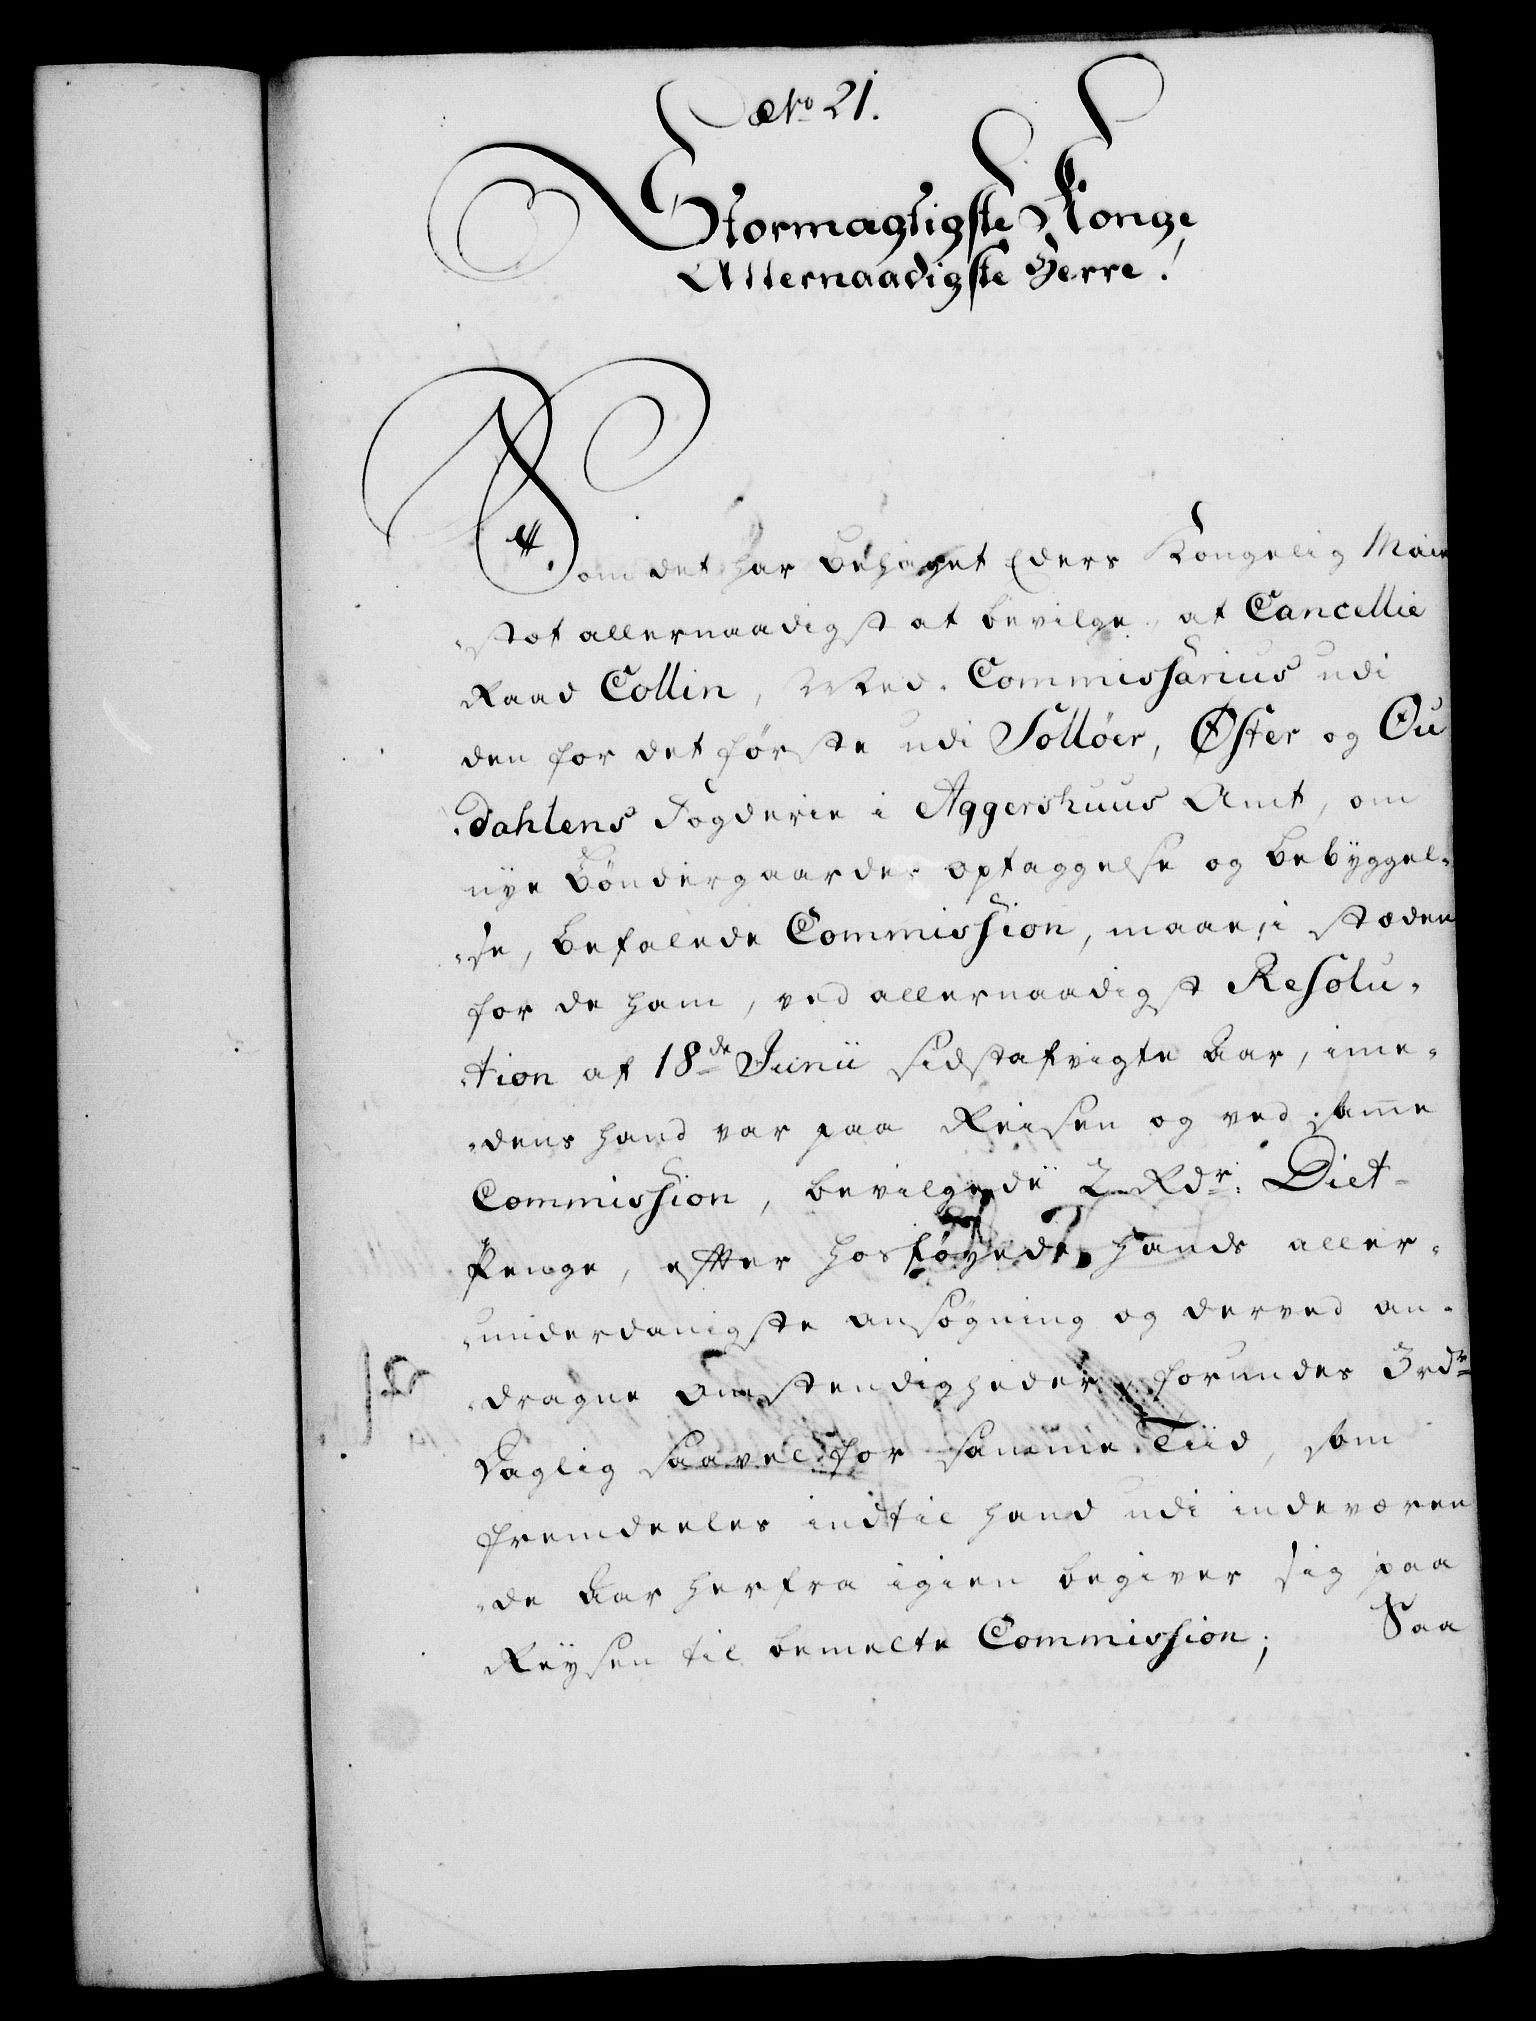 No 21.
Stormægtigste Konge
Allernaadigste Herre!
Som det har behaget Eders Kongelig Maie
stet allernaadigst at bevilge, at Cancellie
Raad Collin, Med. Commissarius udi
den for det første udi Solløer, Øster og Ou
dahlens Fogderie i Aggershuus Amt, om
nye Bøndergaarders optaggelse og bebyggel-
se, befalede Commission, maae, i stæden
for de ham, ved allernaadigst Resolu-
tion af 18de Junii sidstafvigte Aar, ime-
dens hand var paa Reisen og ved samme
Commission, bevilgede 2 Rdr. Diet-
Penge, efter hosføyede hands aller-
underdanigste ansøgning og derved an-
dragne omstendigheder, forundes 3 rdr
daglig saavel for samme Tiid, som
fremdeeles indtil hand udi indeværen
de Aar herfra igien begiver sig paa
Reysen til bemelte Commission;
Saa